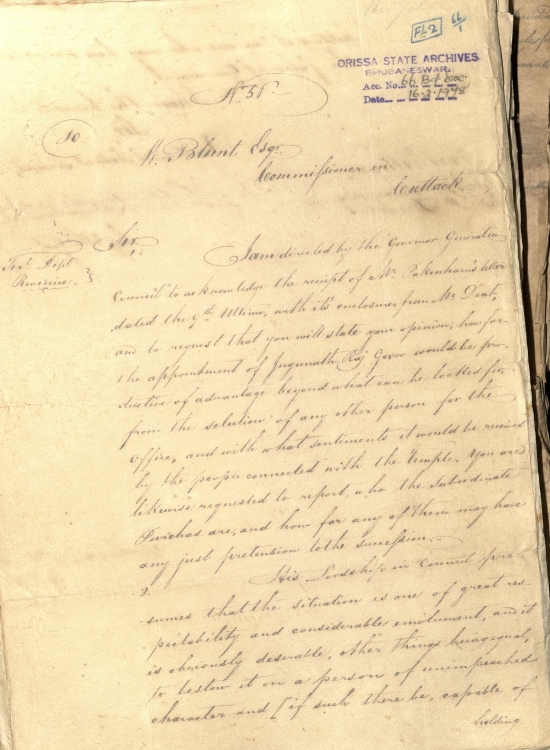 Fl-2 66/1
ORISSA STATE ARCHIVES
BHUBANESWAR.
Acc. No. 66 Bd
Date 16-3-1978
No. 51
To
W. Blunt Esqr.
Commissioner in
Cuttack
Sir,
Terl. Dept
Revenue.
I am directed by the Governor General in
Council to acknowledge the receipt of Mr. Pakenham's letter
dated the 9th Ultimo, with its enclosures from Mr. Dent,
and to request that you will state your opinion, how far
the appointment of Jugunnath Raj Goroo would be pro-
ductive of advantage beyond what can be looked for
from the selection of any other person for the
Office, and with what sentiments it would be received
by the people connected with the Temple. You are
likewise requested to report, who the subordinate
Purichas are, and how far any of them may have
any just pretension to the succession.
2. His Lordship in Council pre-
sumes that the situation is one of great res-
pectability and considerable emolument, and it
is obviously desirable, other things being equal,
to bestow it on a person of unimpeached
character and [if such there be, capable of
holding